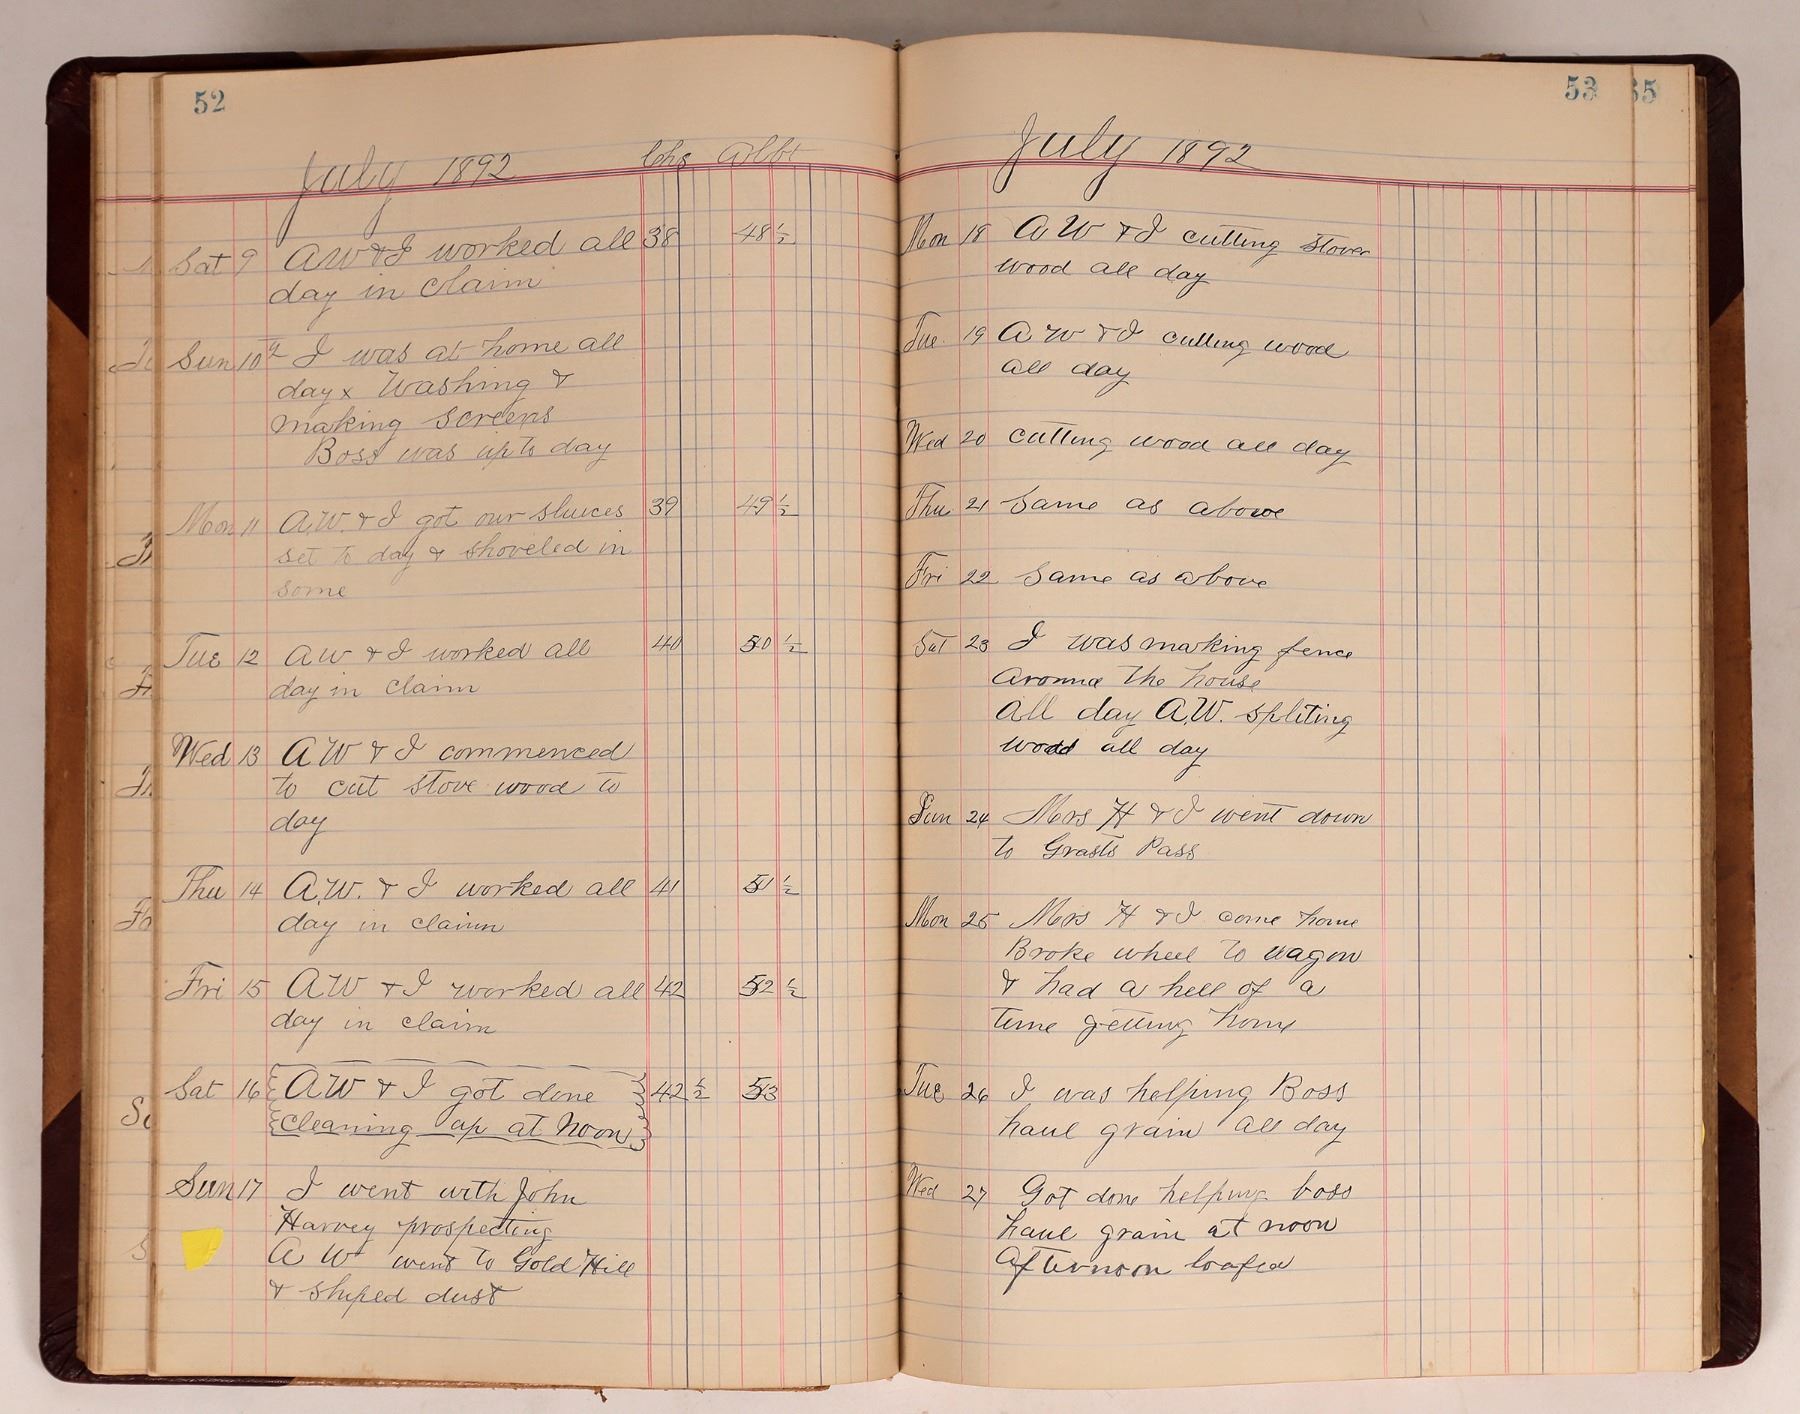 52
July 1892 Chs Albt
Sat 9 AW & I worked all 38 48 1/2
day in claim
Sun 10th I was at home all
day x Washing &
making screens
Boss was up to day
Mon 11 A.W. & I got our sluices 39 49 1/2
set to day & shoveled in
some
Tue 12 AW & I worked all 40 50 1/2
day in claim
Wed 13 AW & I commenced
to cut stove wood to
day
Thu 14 A.W. & I worked all 41 51 1/2
day in claim
Fri 15 AW & I worked all 42 52 1/2
day in claim
Sat 16 AW & I got done 42 1/2 53
cleaning up at Noon
Sun 17 I went with John
Harvey prospecting
A W went to Gold Hill
& shiped dust
53
55
July 1892
Mon 18 A W & I cutting stove
wood all day
Tue 19 A W & I cutting wood
all day
Wed 20 cutting wood all day
Thu 21 Same as above
Fri 22 Same as above
Sat 23 I was making fence
around the house
all day A.W. spliting
wood all day
Sun 24 Mrs H & I went down
to Grasts Pass
Mon 25 Mrs H & I come home
Broke wheel to wagon
& had a hell of a
time getting home
Tue 26 I was helping Boss
haul grain all day
Wed 27 Got done helping boss
haul grain at noon
afternoon loafed